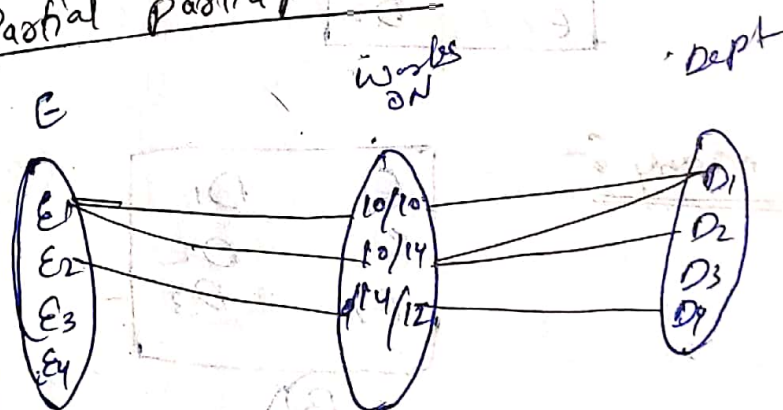 Partial
E
Works
ON
Dept
E1
E2
E3
E4
10/10
10/14
14/12
D1
D2
D3
D4